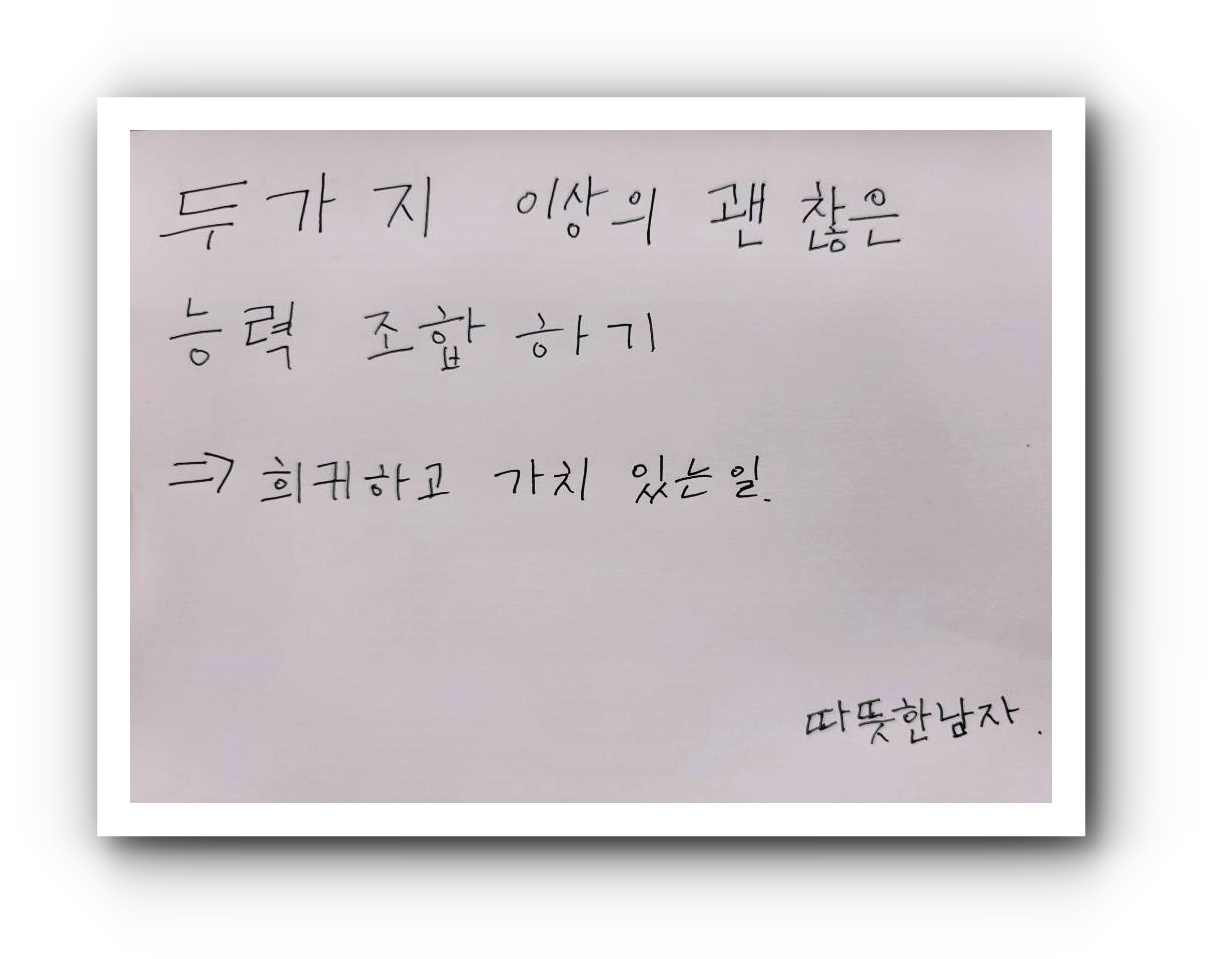 두가지 이상의 괜찮은
능력 조합하기
=> 희귀하고 가치 있는일.
따뜻한남자.